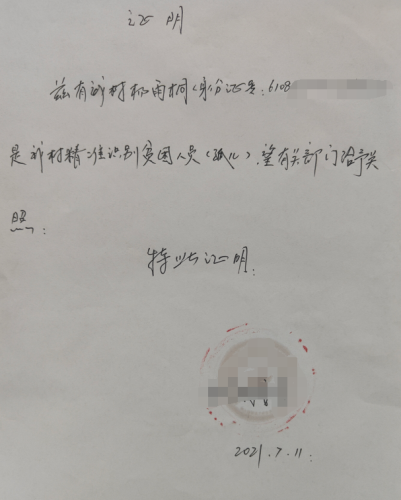 证明
兹有我村杨雨桐（身份证号：6103
是我村精准识别贫困人员（孤儿）.望有关部门给予关
照：
特此证明.
2021.7.11.